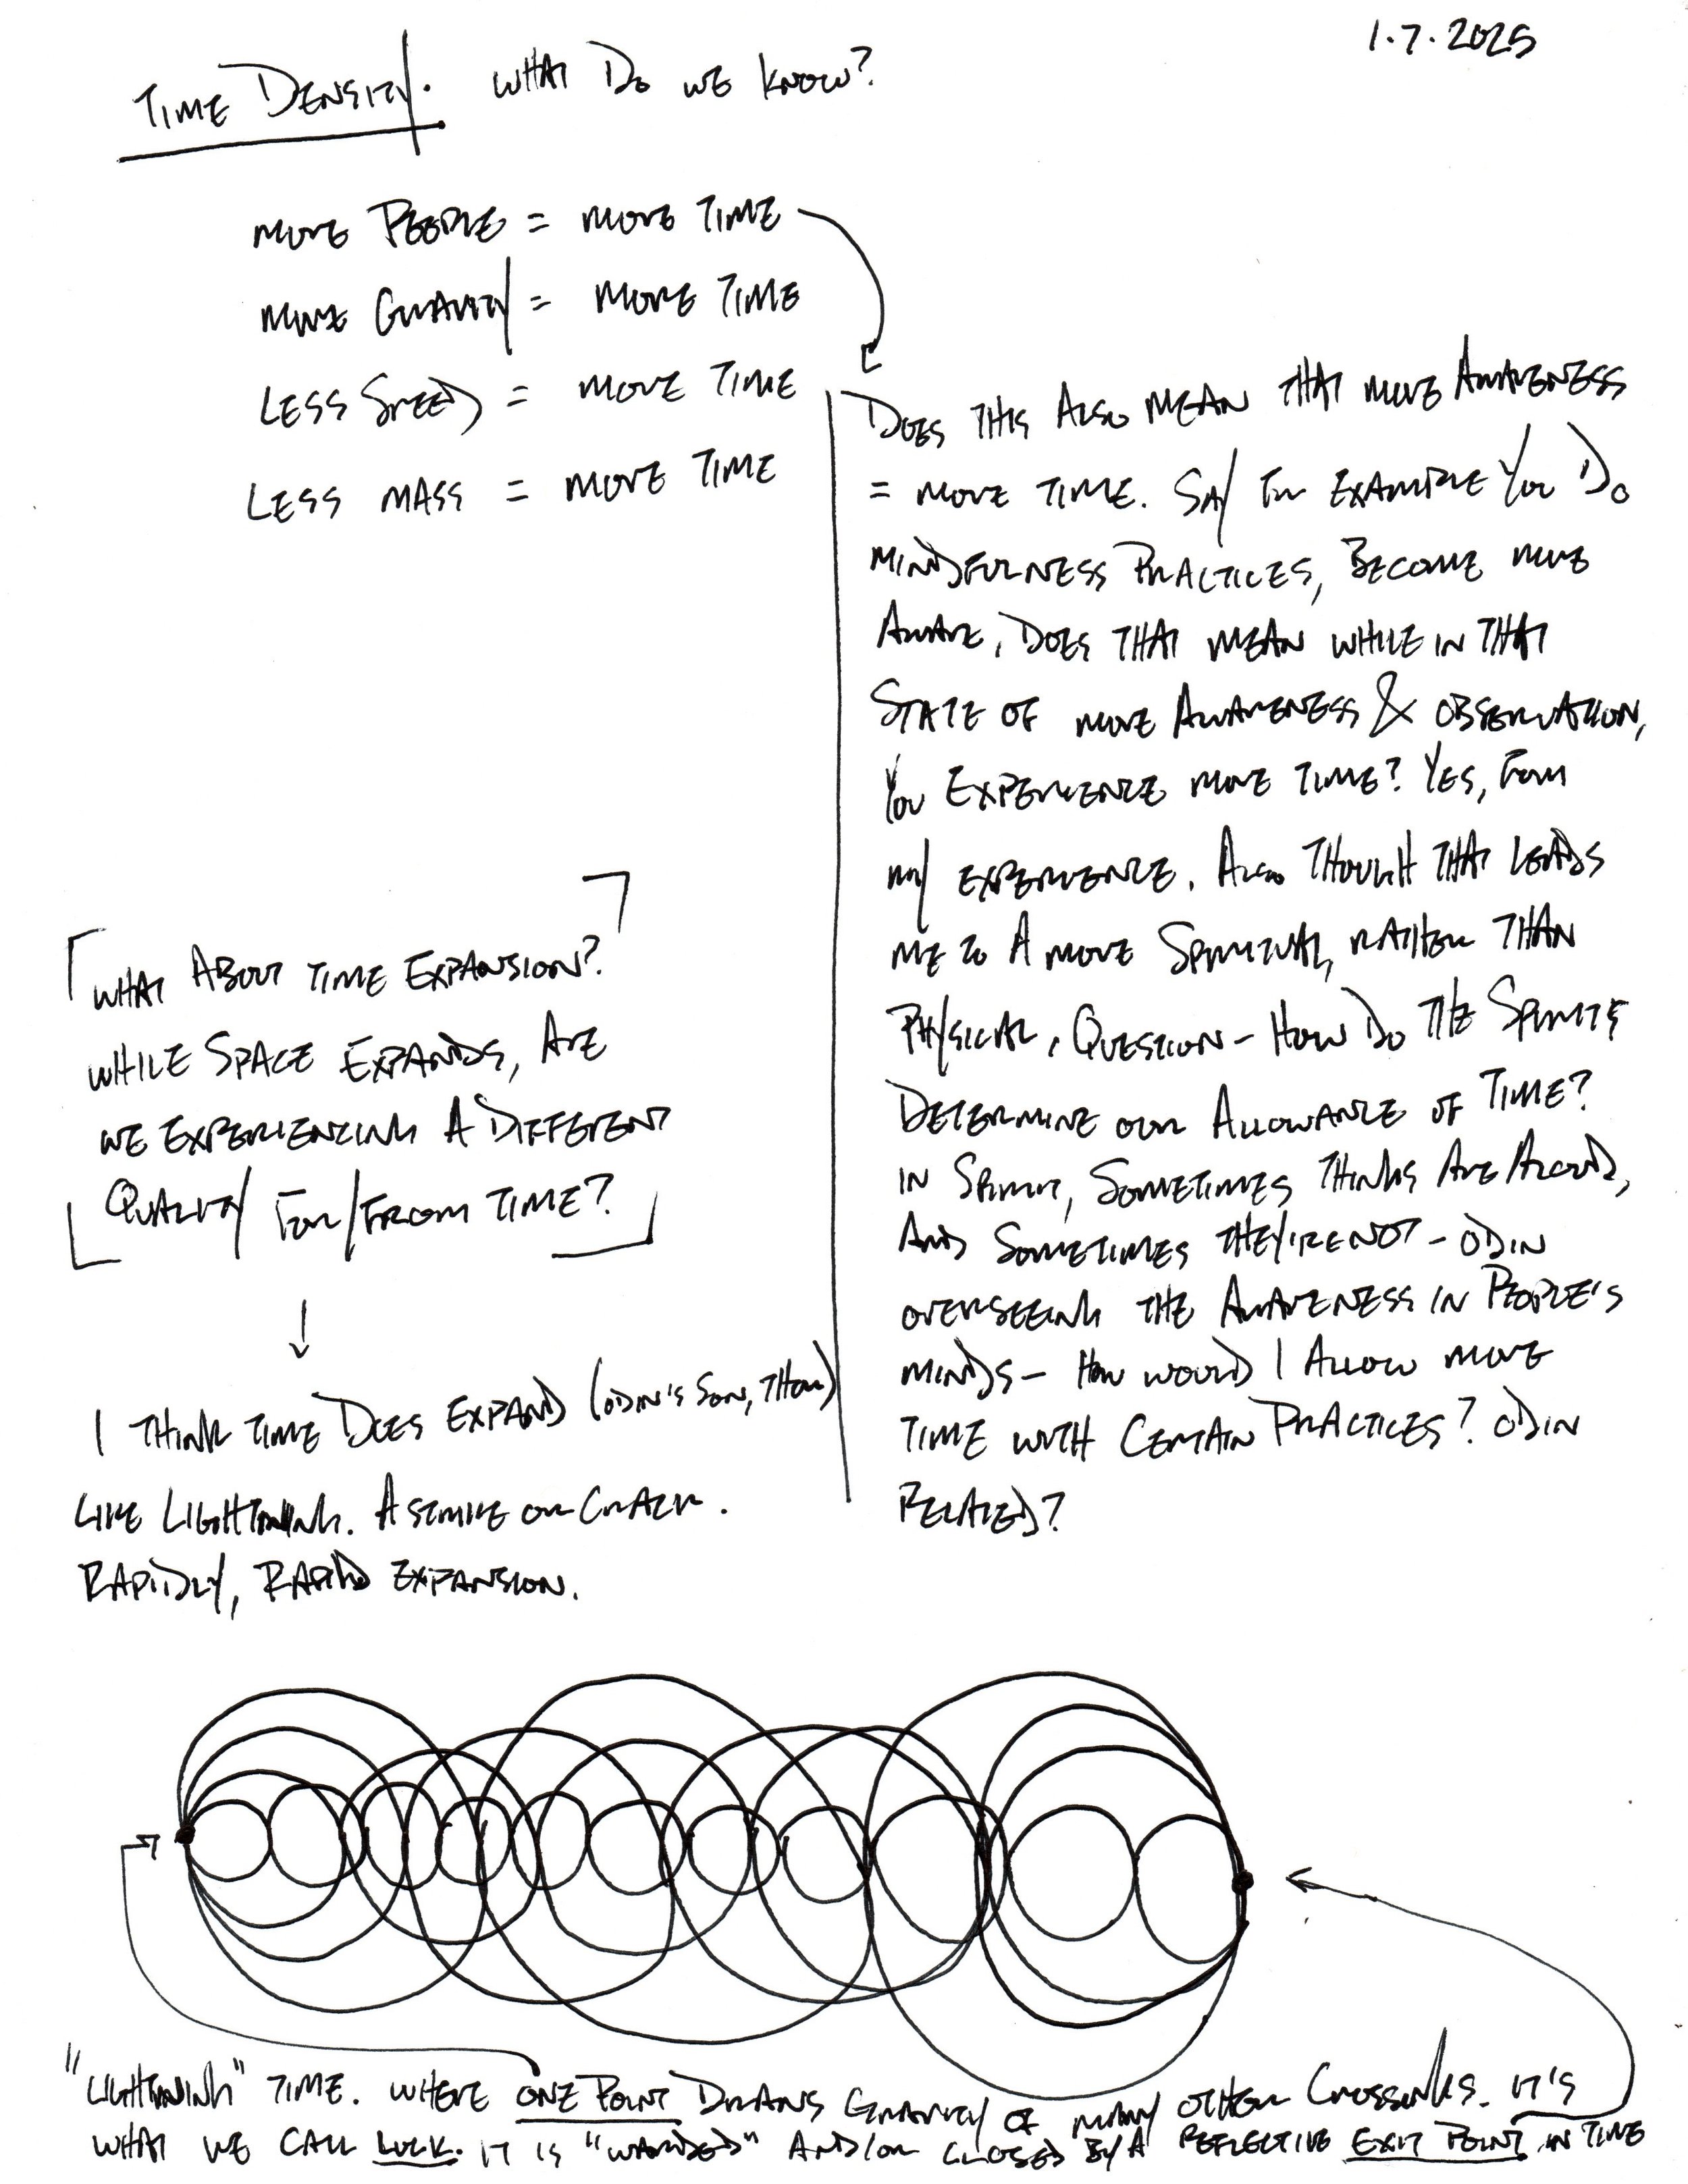 1.7.2025
TIME DENSITY. WHAT DO WE KNOW?
MORE PEOPLE = MORE TIME
MORE GRAVITY = MORE TIME
LESS SPEED = MORE TIME
LESS MASS = MORE TIME
DOES THIS ALSO MEAN THAT MORE AWARENESS
= MORE TIME. SAY FOR EXAMPLE YOU DO
MINDFULNESS PRACTICES, BECOME MORE
AWARE, DOES THAT MEAN WHILE IN THAT
STATE OF MORE AWARENESS & OBSERVATION,
YOU EXPERIENCE MORE TIME? YES, FROM
MY EXPERIENCE. ALSO THOUGH THAT LEADS
ME TO A MORE SPIRITUAL, RATHER THAN
PHYSICAL, QUESTION - HOW DO THE SPIRITS
DETERMINE OUR ALLOWANCE OF TIME?
IN SPIRIT, SOMETIMES THINGS ARE ALOUD,
AND SOMETIMES THEY'RE NOT - ODIN
OVERSEEING THE AWARENESS IN PEOPLE'S
MINDS - HOW WOULD I ALLOW MORE
TIME WITH CERTAIN PRACTICES? ODIN
RELATED?
WHAT ABOUT TIME EXPANSION?
WHILE SPACE EXPANDS, ARE
WE EXPERIENCING A DIFFERENT
QUALITY FOR/FROM TIME?
I THINK TIME DOES EXPAND (ODIN'S SON, THOR)
LIKE LIGHTNING. A STRIKE OR CRACK.
RAPIDLY, RAPID EXPANSION.
"LIGHTNING" TIME. WHERE ONE POINT DRAWS GRAVITY OF MANY OTHER CROSSINGS. IT'S
WHAT WE CALL LUCK. IT IS "WARDED" AND/OR CLOSED BY A REFLECTIVE EXIT POINT IN TIME